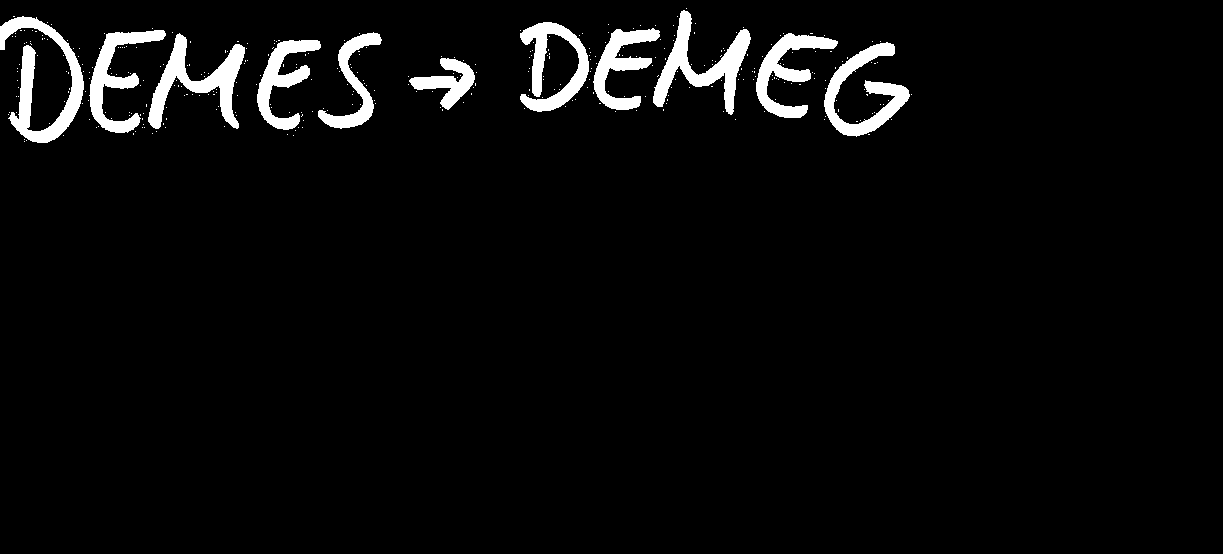 DEMES → DEMEG